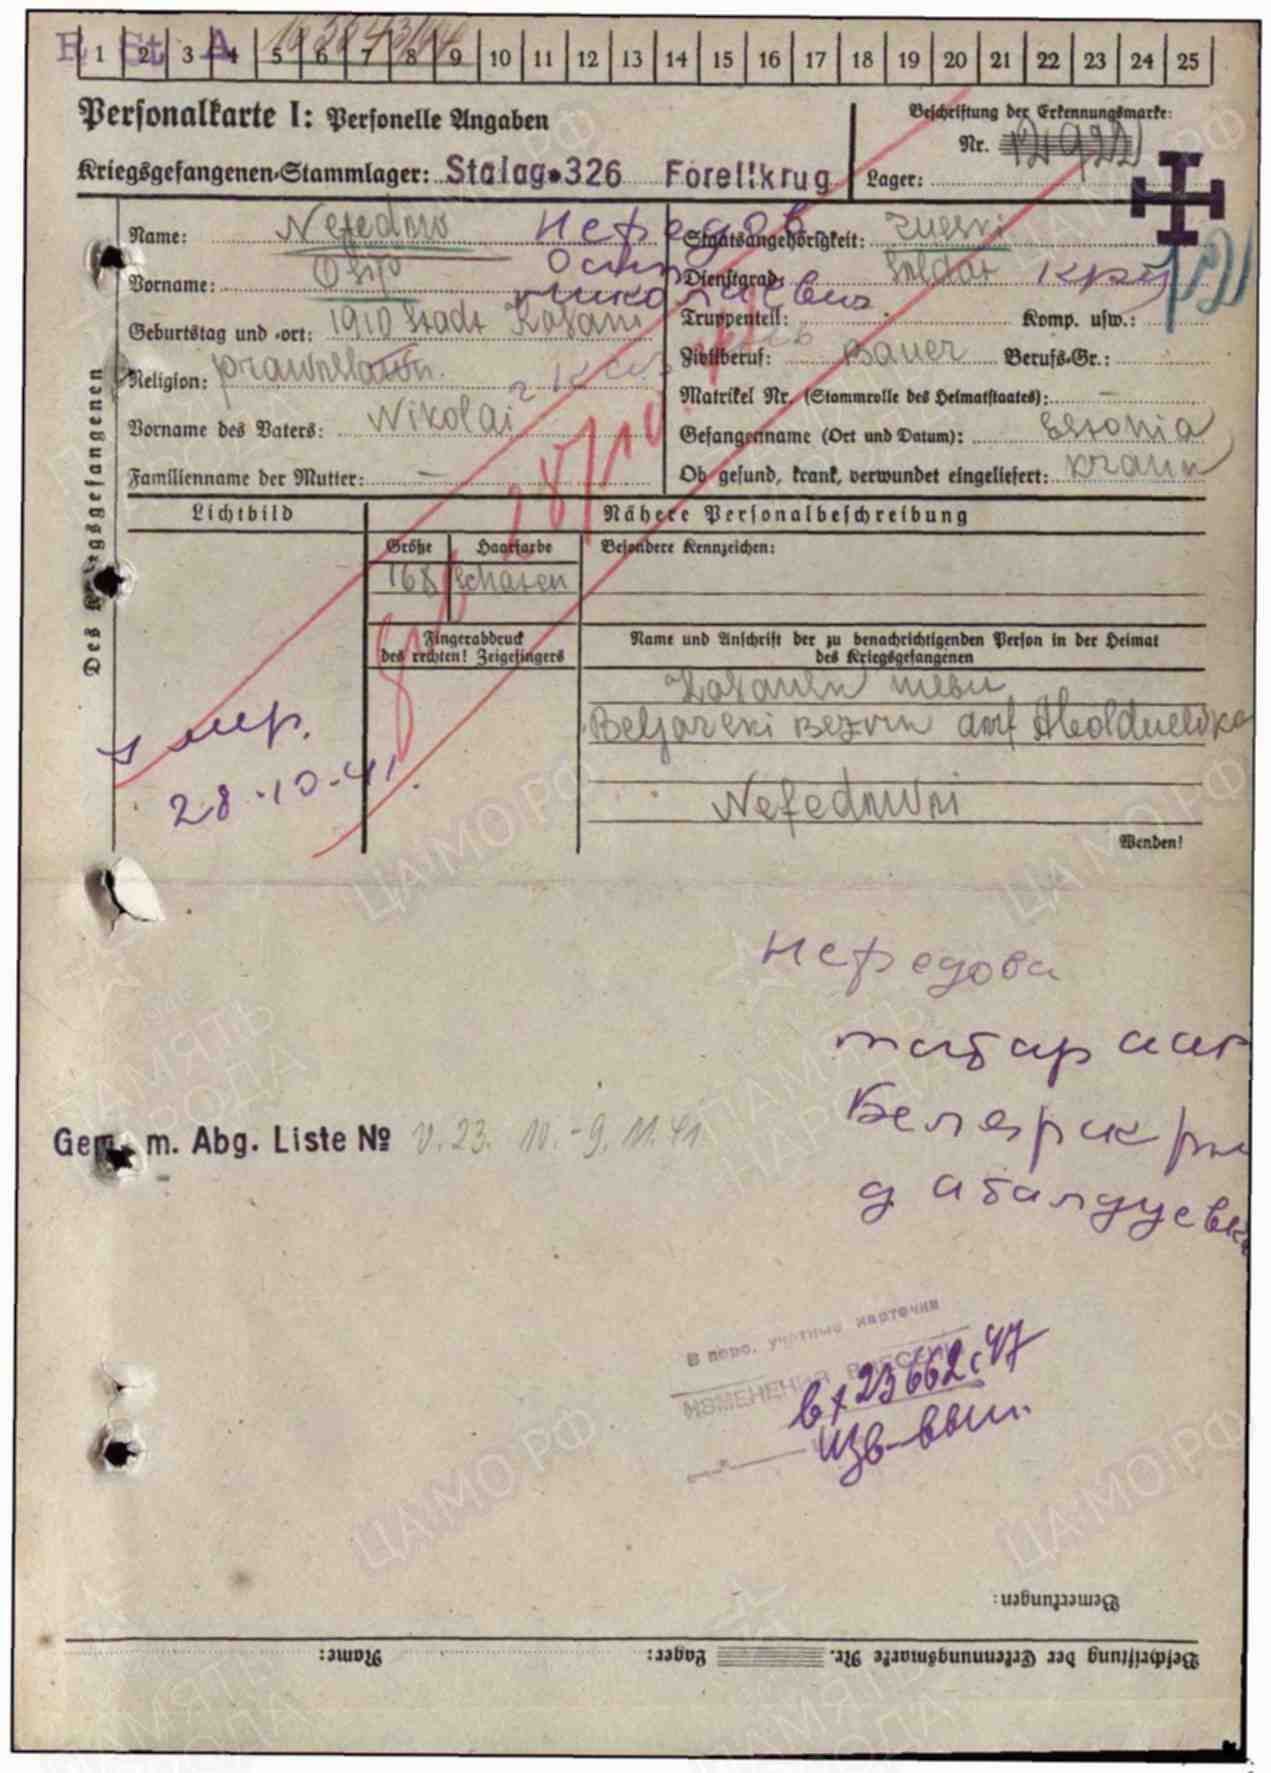 R St A
1 2 3 4 5 6 7 8 9 10 11 12 13 14 15 16 17 18 19 20 21 22 23 24 25
Personalkarte I: Personelle Angaben
Beschriftung der Erkennungsmarke:
Nr. 12922
Kriegsgefangenen-Stammlager: Stalag 326 Forellkrug
Lager:
Des Kriegsgefangenen
Name: Nefedow Нефедов
Vorname: Osip Осип
Николаевич
Geburtstag und -ort: 1910 Stadt Kasani
Religion:
Vorname des Vaters: Nikolai
Familienname der Mutter: —
Staatsangehörigkeit:
Dienstgrad: Soldat кр-й
Truppenteil: Komp. usw.:
Zivilberuf: Bauer Berufs-Gr.:
Matrikel Nr. (Stammrolle des Heimatstaates): —
Gefangenname (Ort und Datum): Estonia
Ob gesund, krank, verwundet eingeliefert:
28/10
Lichtbild
Nähere Personalbeschreibung
Größe Haarfarbe Besondere Kennzeichen:
168
Fingerabdruck
des rechten! Zeigefingers
Name und Anschrift der zu benachrichtigenden Person in der Heimat
des Kriegsgefangenen
Beljarski dorf
Wenden!
умер.
28-10-41.
Нефедова
татар
Белярск
д Абалдуевка
Gem. m. Abg. Liste № v. 23. 10.-9. 11. 41
В перс. учетные карточки
ИЗМЕНЕНИЯ ВНЕСЕНЫ
вх 23662с 47
изв-выш.
Bemerkungen:
Beschriftung der Erkennungsmarke Nr. Lager: Name:
ЦАМО РФ
ПАМЯТЬ
НАРОДА